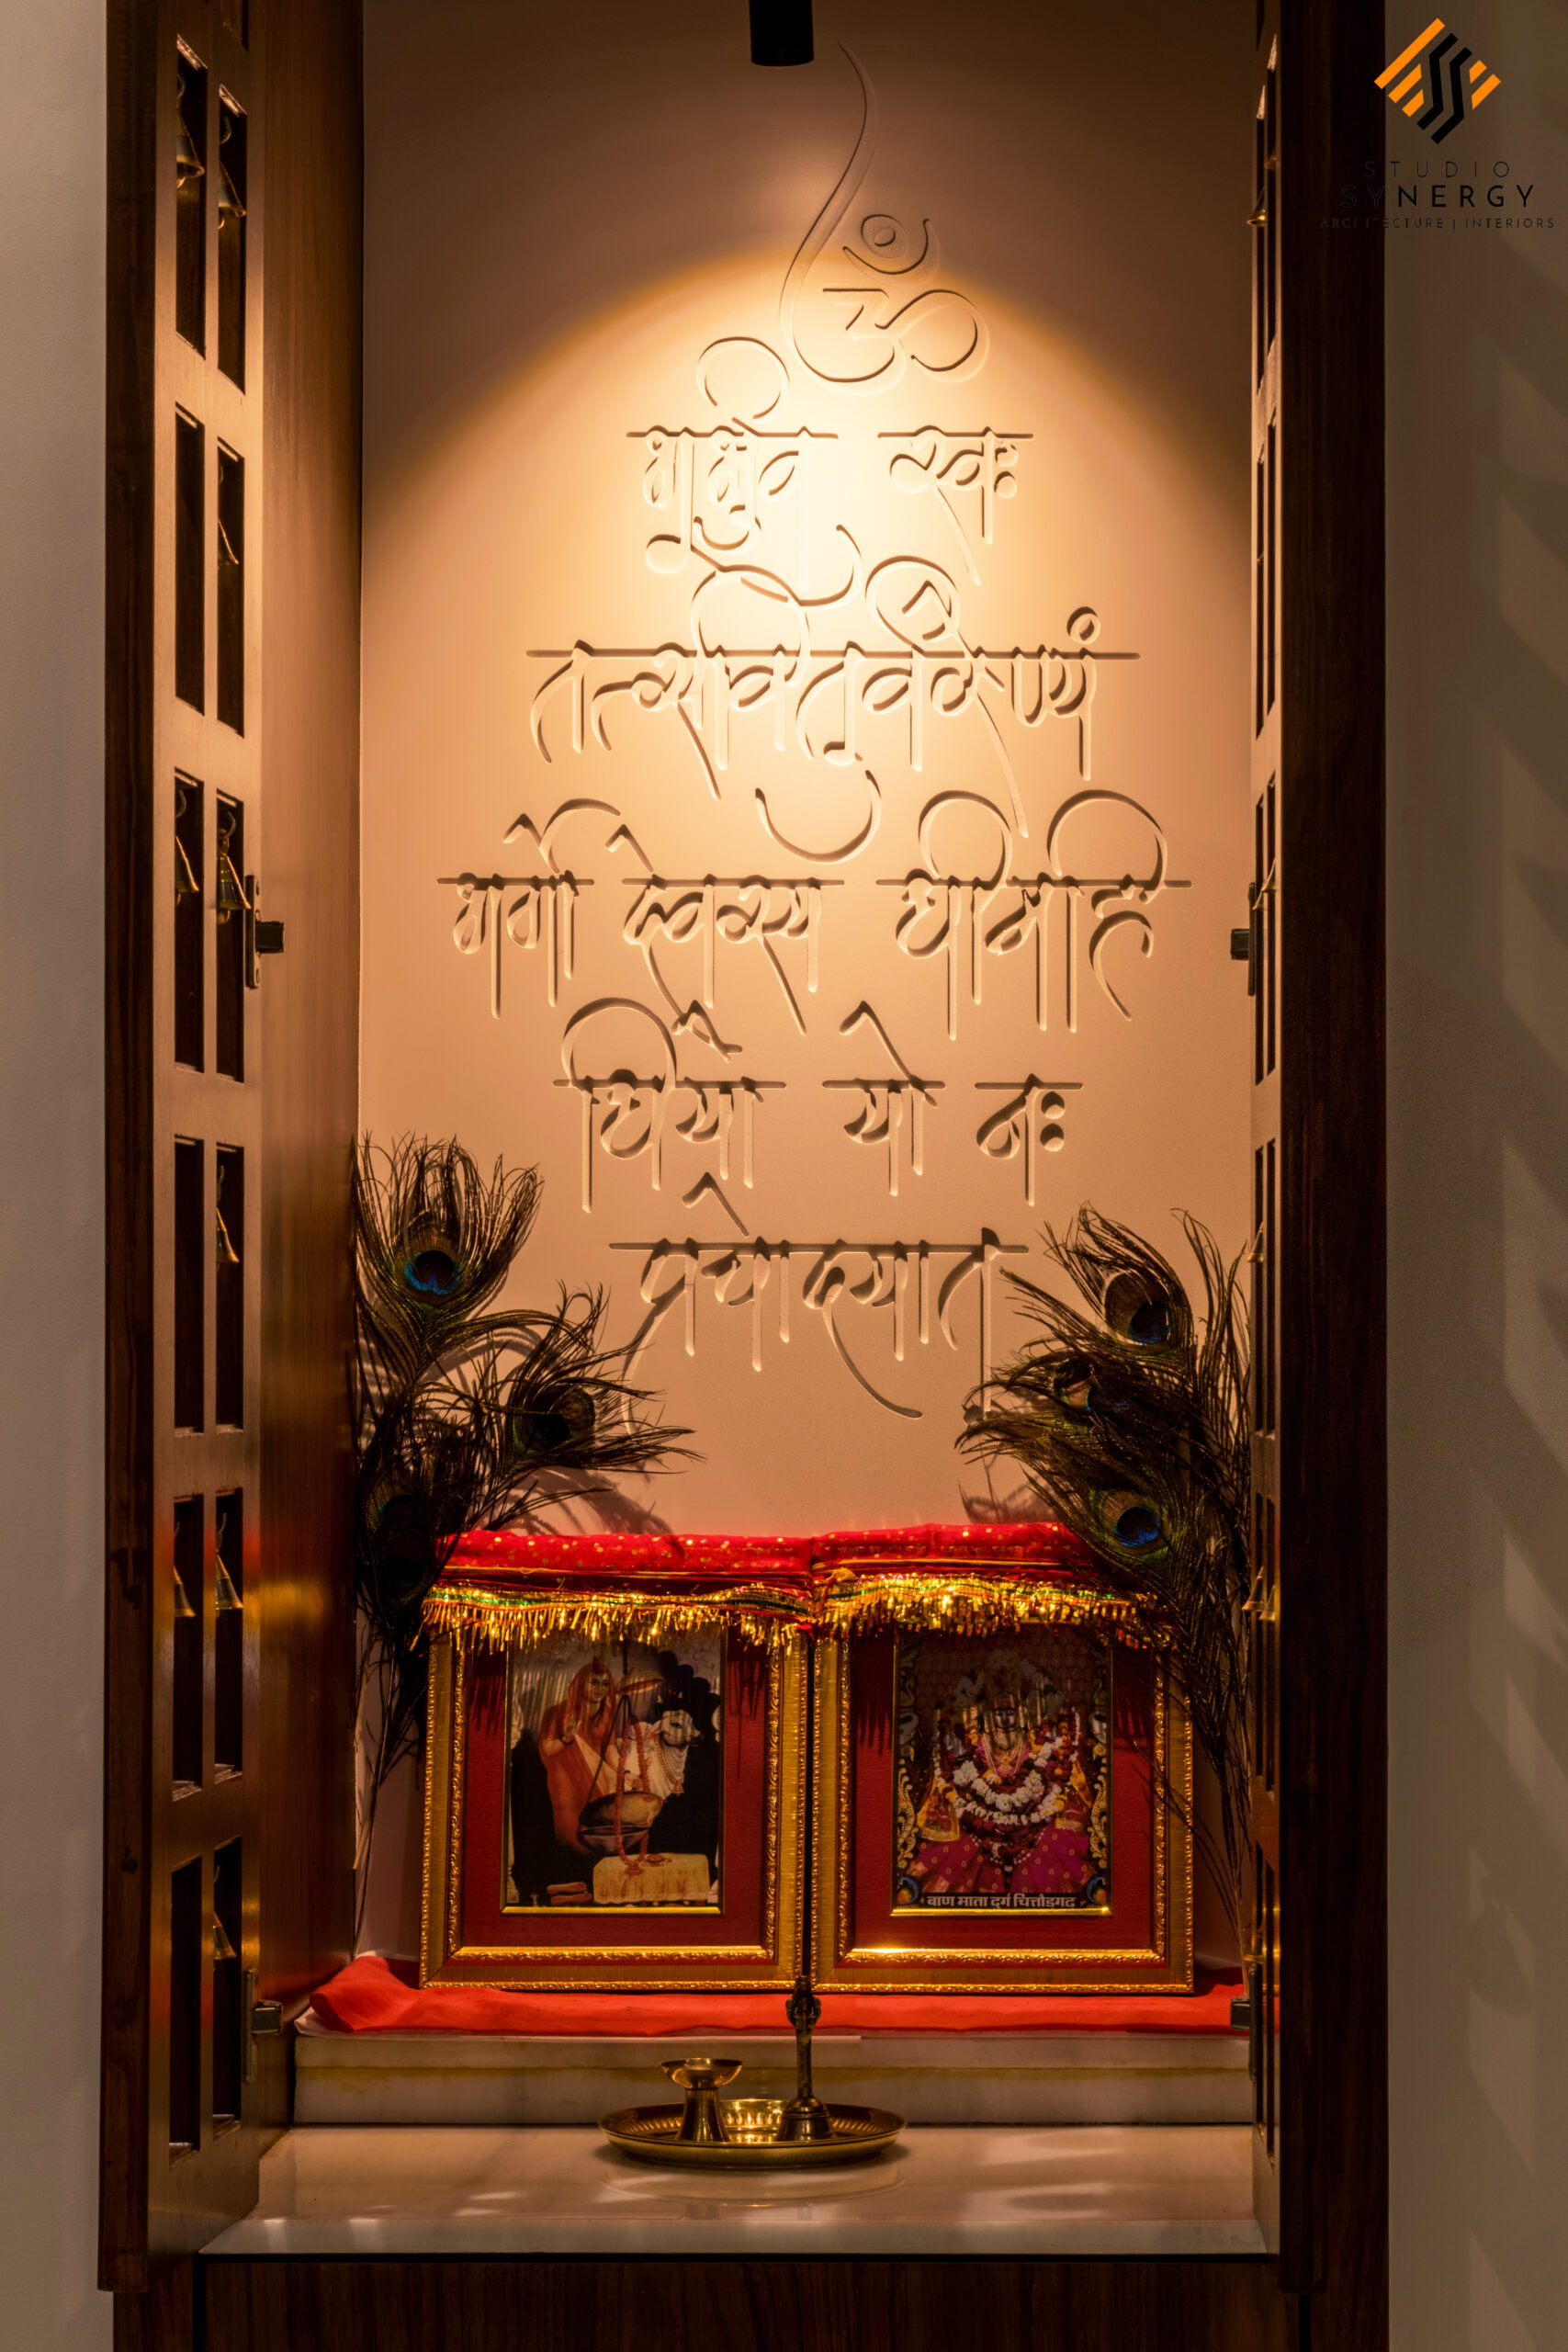 ॐ
भुर्भुव स्वः
तत्सवितुर्वरेण्यं
भर्गो देवस्य धीमहि
धियो यो नः
प्रचोदयात्
बाण माता दुर्ग चित्तौड़गढ़
STUDIO
SYNERGY
ARCHITECTURE | INTERIORS